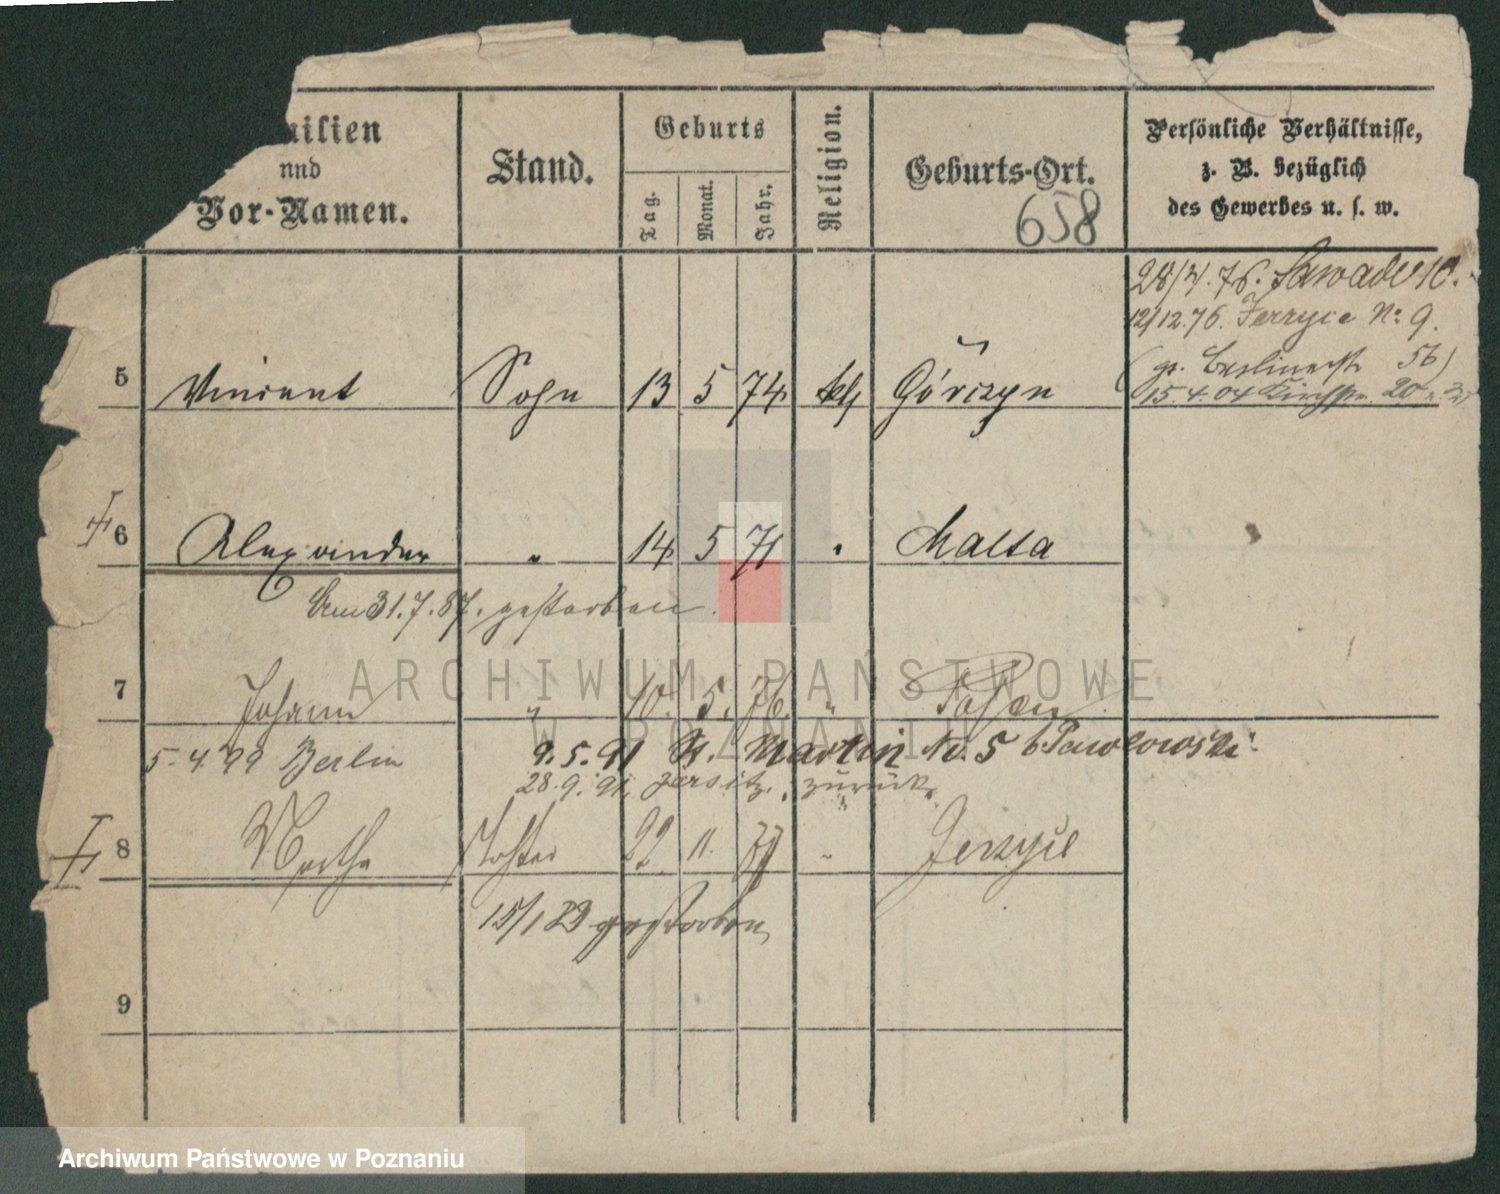 milien
und
Vor-Namen.
Stand.
Geburts
Tag.
Monat.
Jahr.
Religion.
Geburts-Ort.
658
Persönliche Verhältnisse,
z. B. bezüglich
des Gewerbes u. s. w.
28/ 76. Zawade 10.
12/12.76. Jerzyce No 9.
(gr. Berlinerstr 56)
15.4.04 20
5 Vincent Sohn 13 5 74 kth Górczyn
6 Alexander " 14 5 71 " Malta
Am 31.7.87. gestorben.
7 Johann " 10. 5. 76. " Posen
5.4.99 Berlin
9.5.91 St. Martin No. 5 b. Pawlowski.
28.9.91. Jersitz, zurück.
8 Martha Tochter 22 11. 77 " Jerzyce
15/1 83 gestorben
9
ARCHIWUM PAŃSTWOWE
W POZNANIU
Archiwum Państwowe w Poznaniu